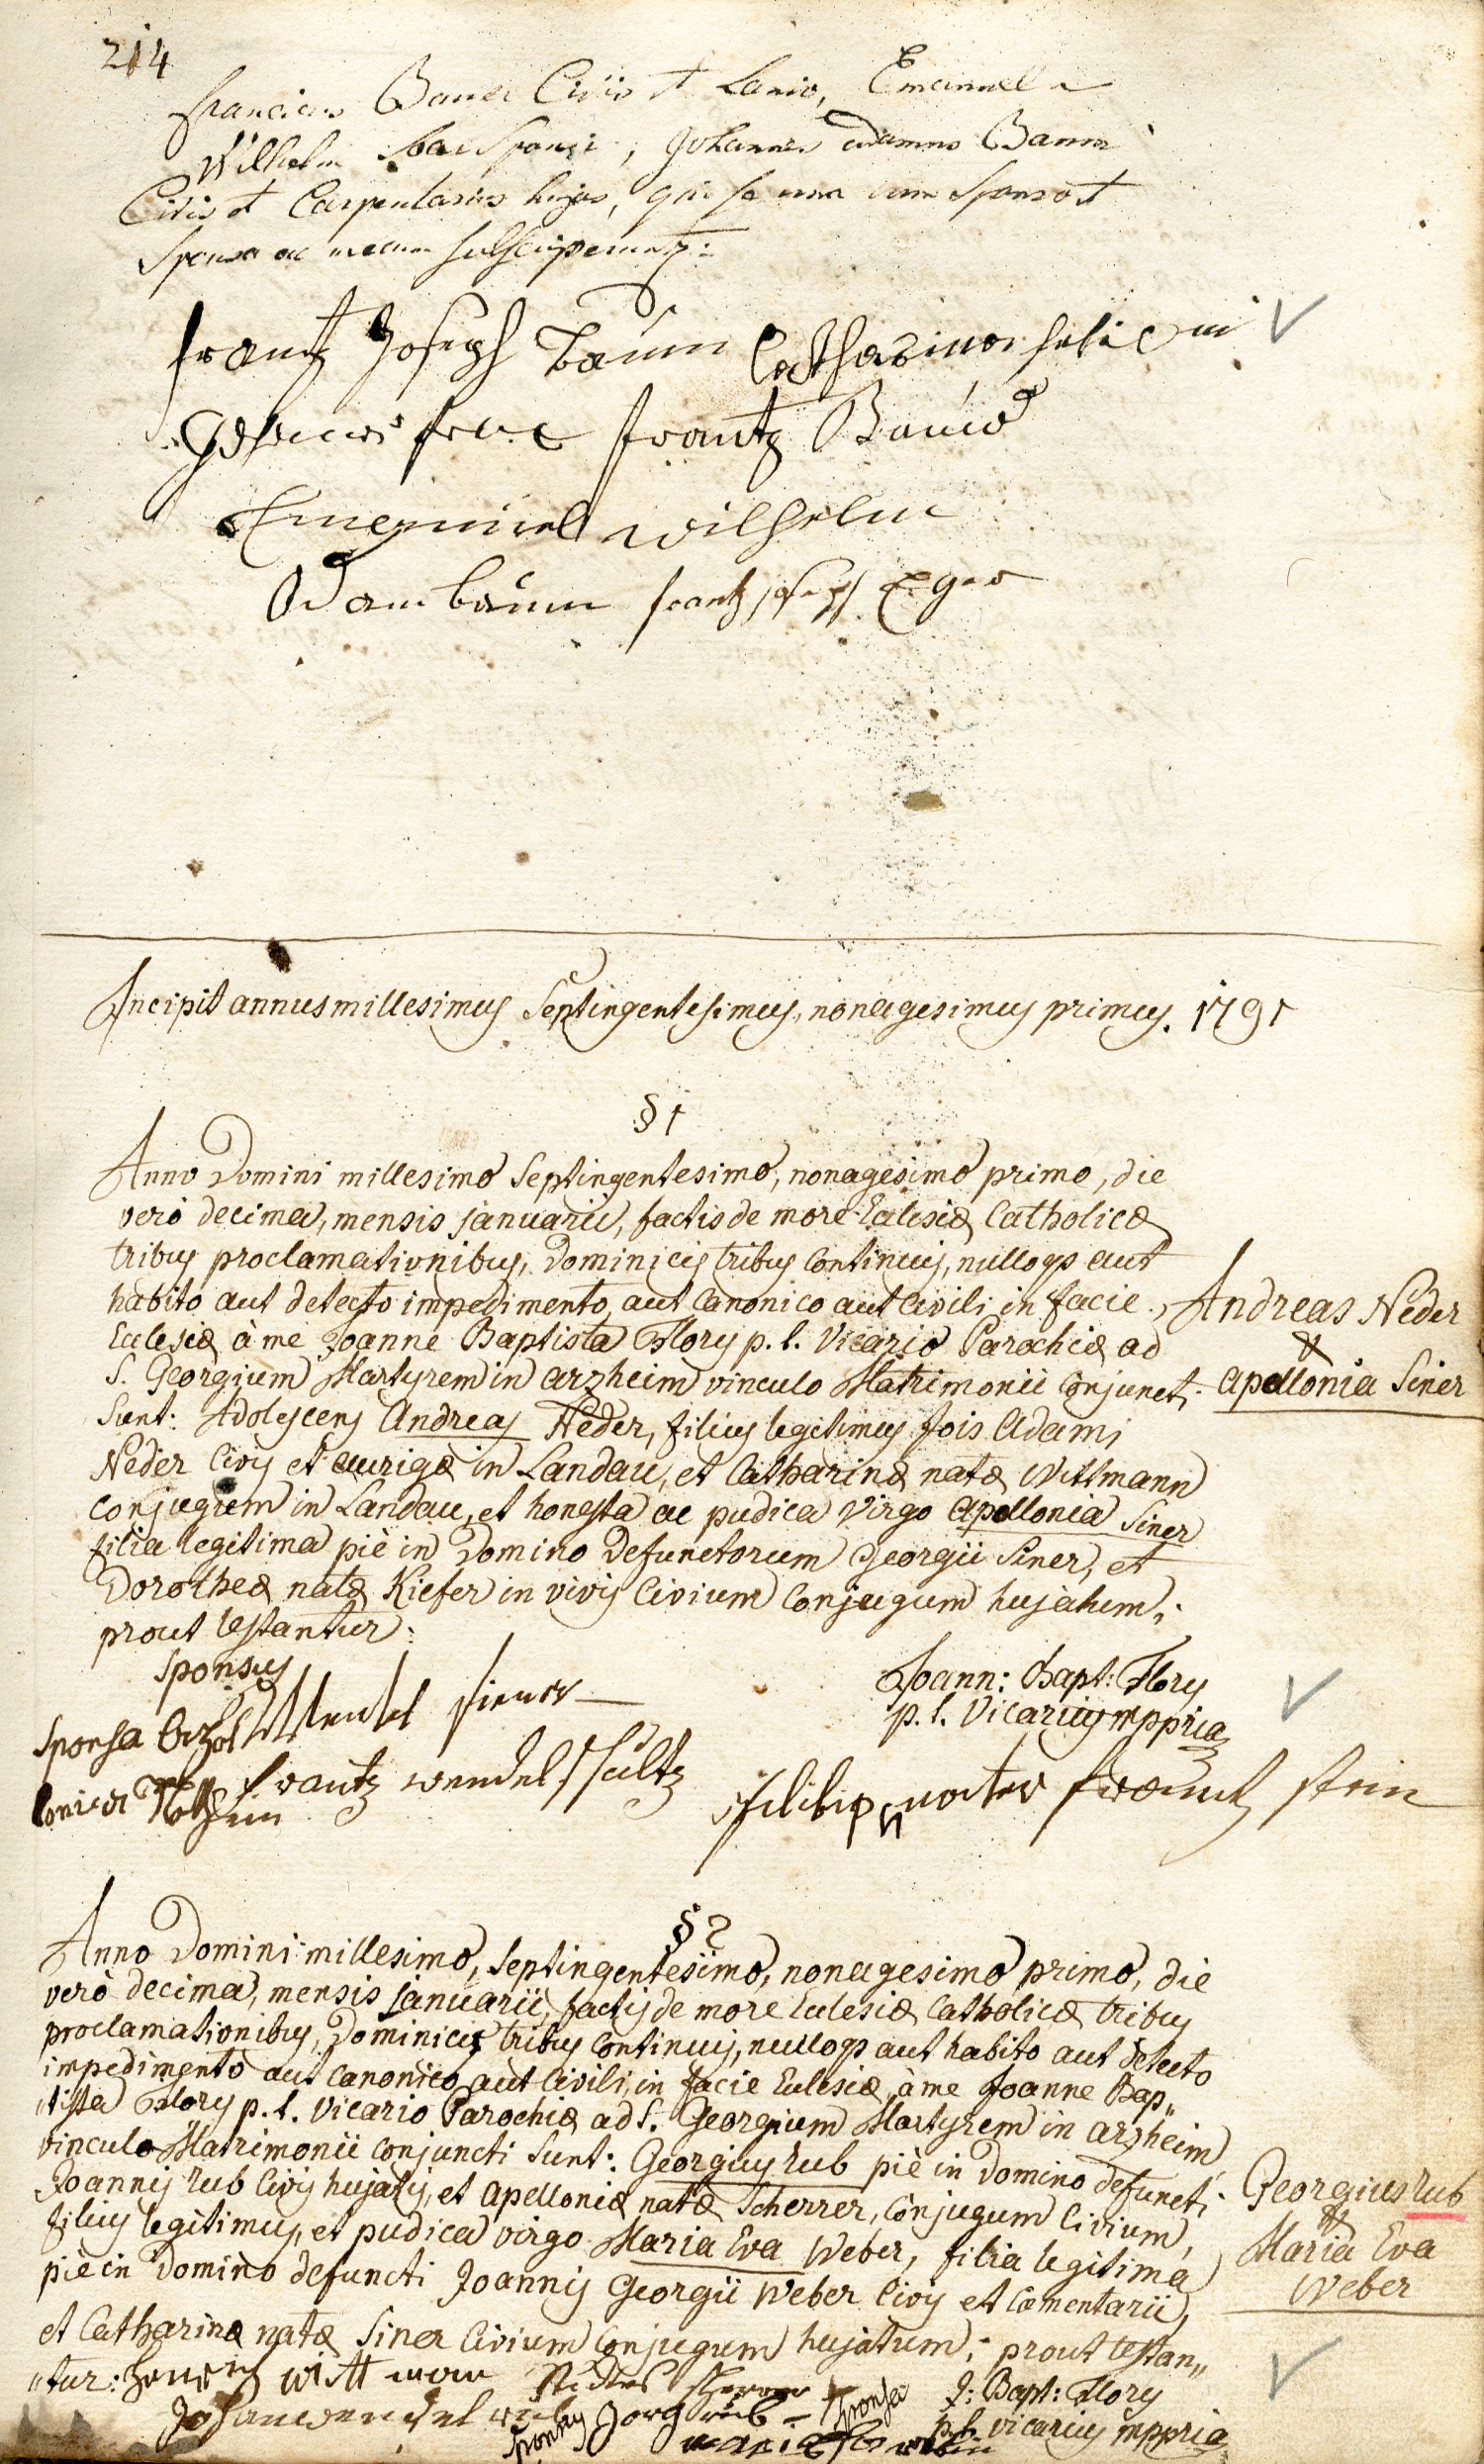 214
Franciscus Bauer Civis et Lanio, Emanuel
Wilhelm Johannes Adamus Baum
Civis et Carpentarius hujas, qui se una cum Sponso et
Sponsa ac mecum subscripserunt:
frantz Joseph Baum Catharina
frantz Bauer
Emanuel wilhelm
Adam baum frantz Joseph Eger
Incipit annus millesimus Septingentesimus, nonagesimus primus. 1791
§ 1
Anno Domini millesimo Septingentesimo, nonagesimo primo, die
verò decima, mensis januarii, factis de more Ecclesiæ Catholicæ
tribus proclamationibus, Dominicis tribus continuis, nulloqs aut
habito aut detecto impedimento, aut canonico aut civili, in facie
Ecclesiæ à me Joanne Baptista Flory p. t. Vicario Parochiæ ad
S. Georgium Martyrem in arzheim vinculo Matrimonii conjuncti
Sunt: Adolescens Andreas Neder, filius legitimus Jois Adami
Neder Civis et aurigæ in Landau, et Catharinæ natæ Wittmann
conjugum in Landau, et honesta ac pudica virgo apollonia Siner
filia legitima piè in Domino defunctorum Georgii Siner, et
Dorotheæ natæ Kiefer in vivis Civium Conjugum hujatum;
prout testantur:
Andreas Neder
&
apollonia Siner
Sponsus
Sponsa
Joann: Bapt: Flory
p. t. Vicarius mppria
frantz wendel Schultz
frantz stein
§ 2
Anno Domini millesimo, Septingentesimo, nonagesimo primo, die
verò decima, mensis januarii, factis de more Ecclesiæ Catholicæ tribus
proclamationibus, Dominicis tribus continuis, nulloqs aut habito aut detecto
impedimento aut canonico aut civili, in facie Ecclesiæ, à me Joanne Bap„
„tista Flory p. t. Vicario Parochiæ ad S. Georgium Martyrem in arzheim
vinculo Matrimonii conjuncti Sunt: Georgius rub piè in Domino defuncti
Joannis rub Civis hujatis, et apolloniæ natæ Scherrer, Conjugum Civium,
filius legitimus, et pudica virgo Maria Eva Weber, filia legitima
piè in Domino defuncti Joannis Georgii Weber Civis et Cæmentarii,
et Catharinæ natæ Siner Civium Conjugum hujatum; prout testan„
„tur:
Georgius rub
&
Maria Eva
Weber
witt man
Sponsus Jorg rub
Sponsa
J: Bapt: Flory
p. t. vicarius mppria